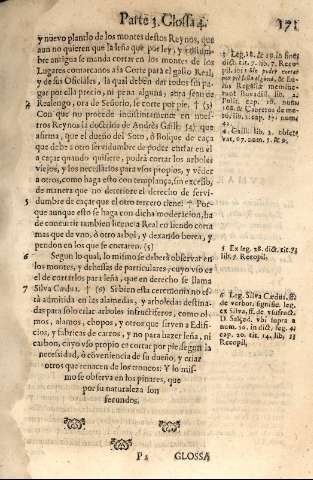 Parte 3. Glossa 4. 171
y nuevo plantío de los montes destos Reynos, que
aun no quieren que la leña que por ley, y costum-
bre antigua se manda cortar en los montes de los
Lugares comarcanos à la Corte para el gasto Real,
y de sus Oficiales, la qual deben dar todos sin pa-
gar por ella precio, ni pena alguna, ora sean de
Realengo, ora de Señorio, se corte por pie. † (3)
Con que no procede indistintamente en nues-
tros Reynos la doctrina de Andrès Gaill: (4) que
afirma, que el dueño del Soto, ò Bosque de caça
que debe a otro servidumbre de poder entrar en el
a caçar quando quisiere, podrà cortar los arboles
viejos, y los necessarios para vsos propios, y vèder
a otros, como haga esto con templança, sin excesso,
de manera que no deteriore el derecho de servi-
5 dumbre de caçar que el otro tercero tiene: † Por-
que aunque esto se haga con dicha moderacion, ha
de concurrir tambien licencia Real en siendo corta
mas que de vno, ò otro arbol, y dexando horca, y
pendon en los que se cortaren. (5)
6 Segun lo qual, lo mismo se deberà observar en
los montes, y dehessas de particulares, cuyo vso es
el de cortarlos para leña, que en derecho se llama
7 Silva Cædua. † (6) Si bien esta ceremonia no es-
tà admitida en las alamedas, y arboledas destina-
das para solo criar arboles infructiferos, como ol-
mos, alamos, chopos, y otros que sirven a Edifi-
cios, y fabricas de carros, y no para hazer leña, ni
carbon, cuyo vso propio es cortar por pie segun la
necesidad, ò còveniencia de su dueño, y criar
otros que renacen de los troncos: Y lo mis-
mo se observa en los pinares, que
por su naturaleza son
fecundos.
3 Leg. 18. & 19. in fine
dict. tit. 7. lib. 7. Recop.
4 Gaill. lib. 2. observat.
67. num. 5. & 9.
5 Ex leg. 28. dict. tit. 7.
lib. 7. Recopil.
6 Leg. Silva Cædua. ff.
de verbor. signific. leg.
ex Silva. ff. de vsufruct.
D. Salçed. vbi supra
num. 20. in dict. leg.
cap. 20. tit. 14. lib.
Recopil.
P 2 GLOSSA